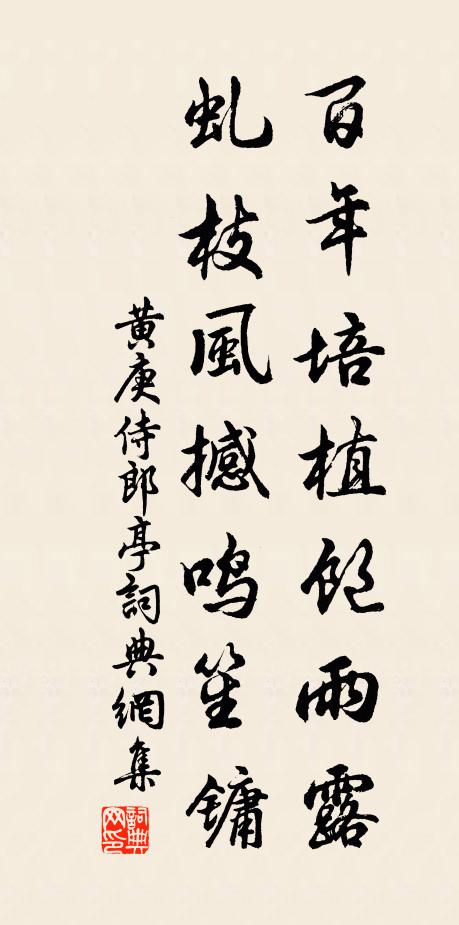 百年培植飽雨露
虬枝風撼鳴笙鏞
黃庚侍郎亭詞典網集
詞典網印